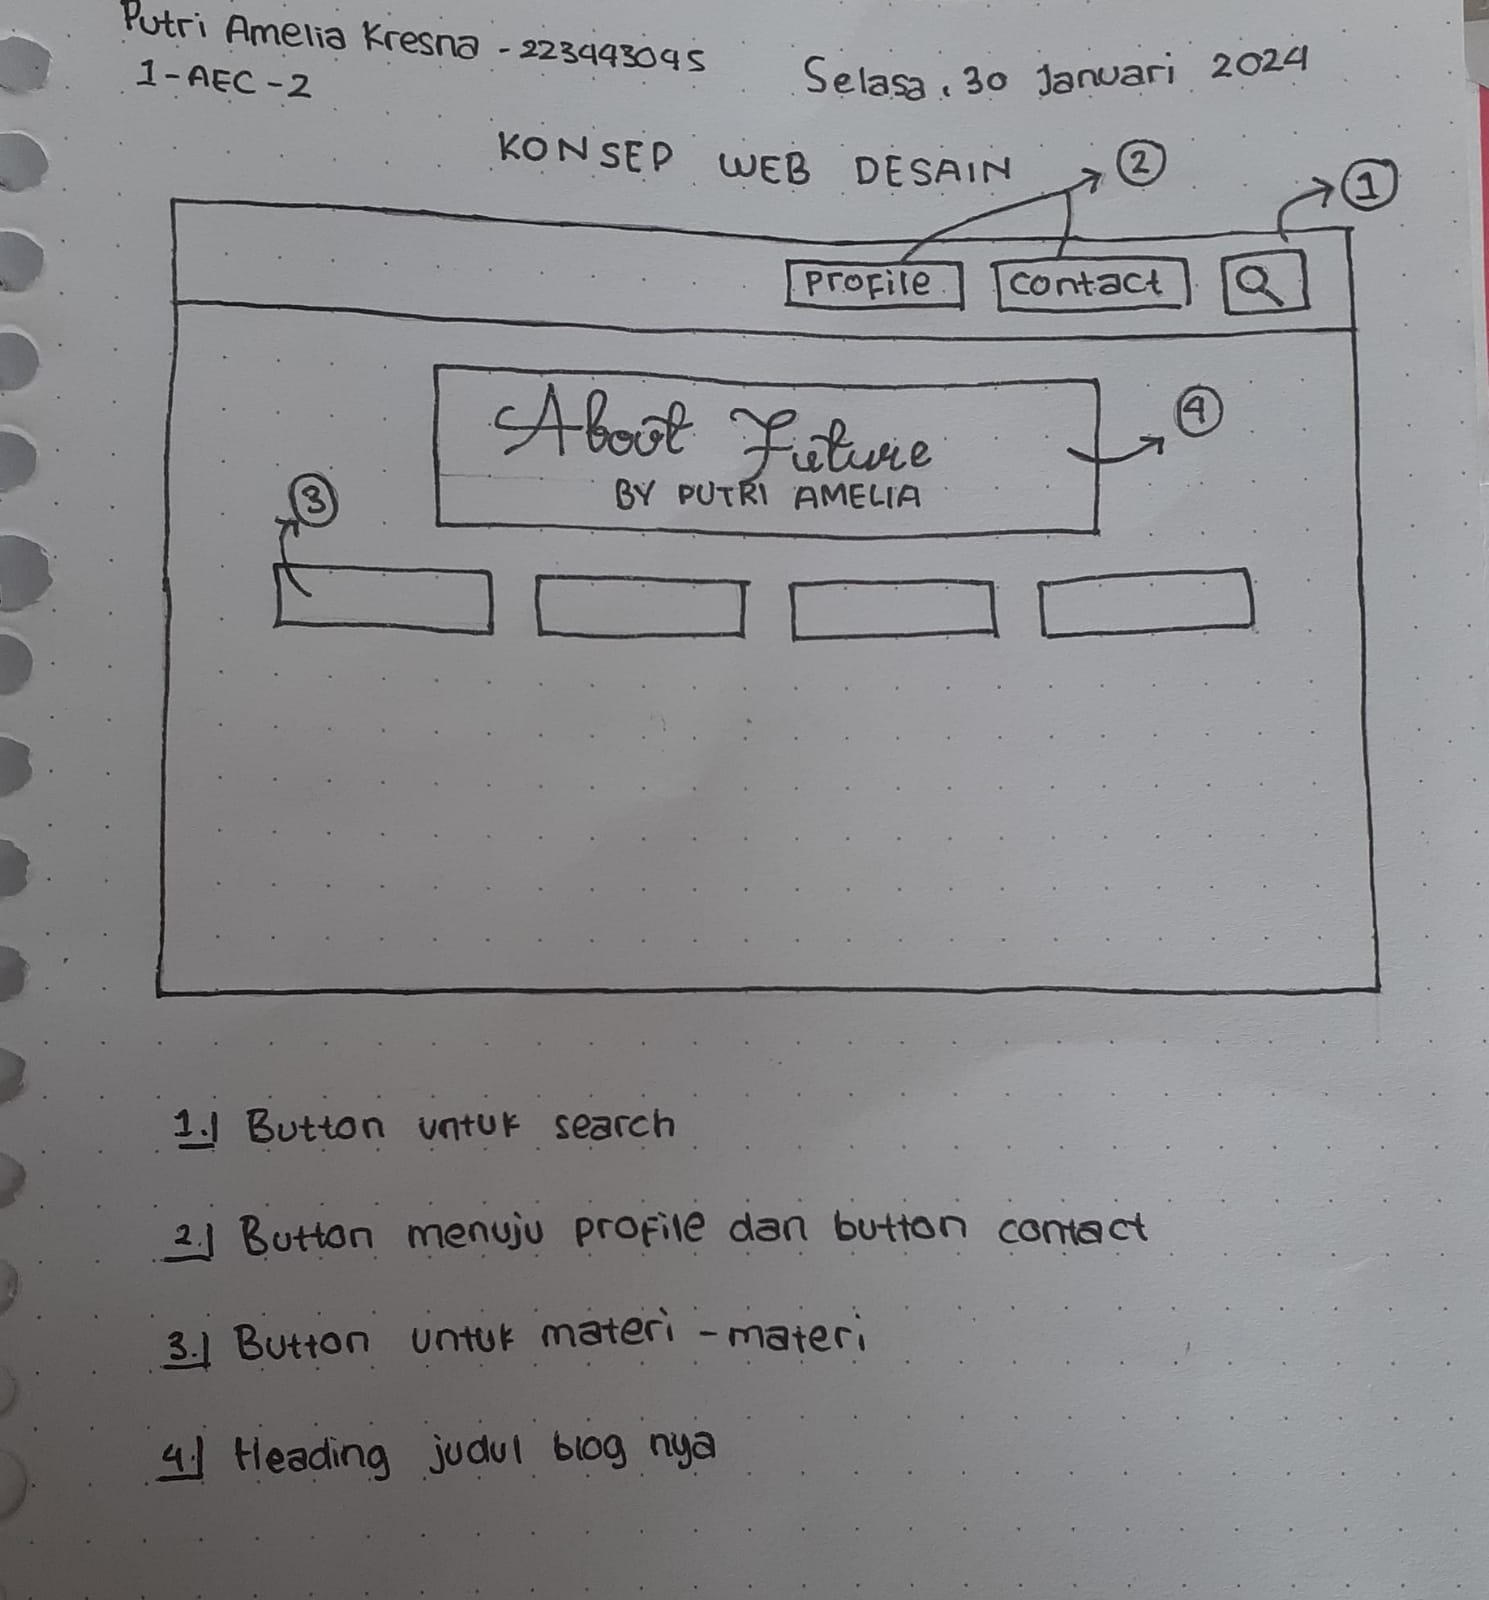 Putri Amelia Kresna - 223443045
1-AEC-2
Selasa, 30 Januari 2024
KONSEP WEB DESAIN
2
1
Profile
Contact
About Future
BY PUTRI AMELIA
4
3
1.) Button untuk search
2.) Button menuju profile dan button contact
3.) Button untuk materi-materi
4.) Heading judul blog nya